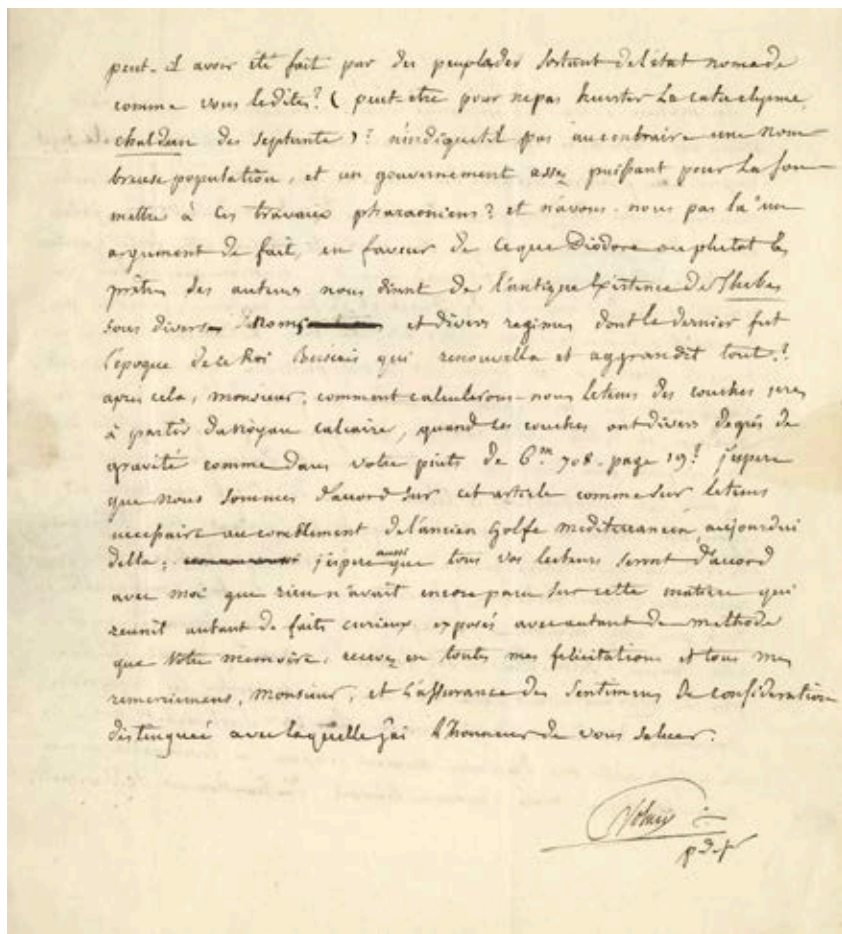 peut-il avoir été fait par des peuplades sortant de l'état nomade
comme vous le dites? (peut-etre pour ne pas heurter le cataclysme
chaldeen des septante)? n'indique t'il pas au contraire une nom-
breuse population, et un gouvernement assez puissant pour la sou-
mettre à ces travaux pharaoniens? et n'avons-nous pas là un
argument de fait, en faveur de ce que Diodore ou plutot les
prêtres ses auteurs nous disent de l'antique Existence de Thebes
sous divers noms et divers regimes dont le dernier fut
l'epoque de ce Roi Busiris qui renouvella et aggrandit tout?
après cela, monsieur, comment calculerons-nous le tems des couches
à partir du noyau calcaire, quand ces couches ont divers degrés de
gravité comme dans votre puits de 6.m 708. page 19? j'espere
que nous sommes d'accord sur cet article comme sur le tems
necessaire au comblement de l'ancien Golfe mediterranéen aujourdui
delta; j'espere aussi que tous vos lecteurs seront d'accord
avec moi que rien n'avait encore paru sur cette matiere qui
reunit autant de faits curieux exposés avec autant de methode
que Votre memoire. recevez en toutes mes felicitations et tous mes
remerciemens, monsieur, et l'assurance des sentimens de consideration
distinguée avec laquelle j'ai l'honneur de vous saluer.
Volney
p. d. f.